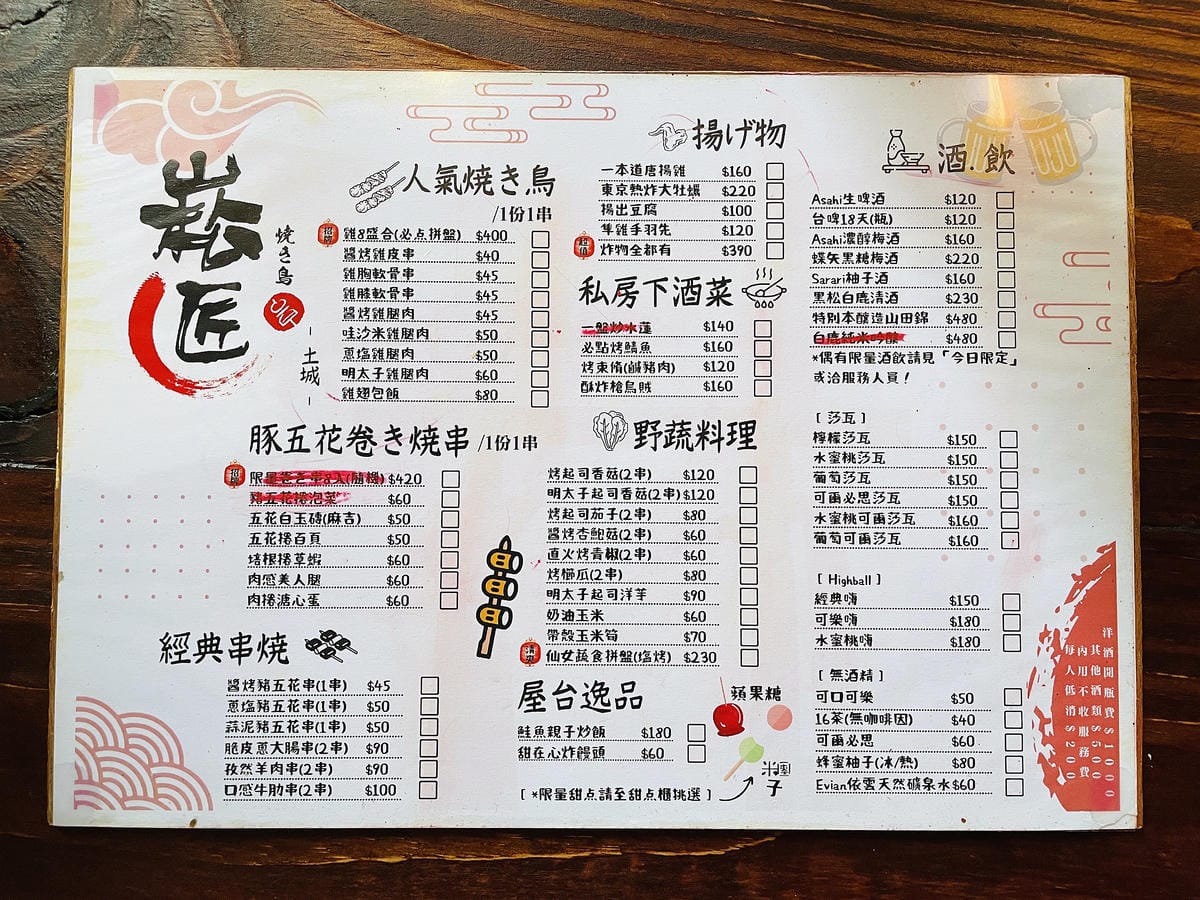 崧匠
焼き鳥
-土城-
人氣焼き鳥
/1份1串
招牌 雞8盛合(必點拼盤) $400
醬烤雞皮串 $40
雞胸軟骨串 $45
雞膝軟骨串 $45
醬烤雞腿肉 $45
哇沙米雞腿肉 $50
蔥塩雞腿肉 $50
明太子雞腿肉 $60
雞翅包飯 $80
豚五花卷き焼串 /1份1串
招牌 限量卷き串8入(隨機) $420
豬五花捲泡菜 $60
五花白玉磚(麻吉) $50
五花捲百頁 $50
培根捲草蝦 $60
肉感美人腿 $60
肉捲溏心蛋 $60
經典串燒
醬烤豬五花串(1串) $45
蔥塩豬五花串(1串) $50
蒜泥豬五花串(1串) $50
脆皮蔥大腸串(2串) $90
孜然羊肉串(2串) $90
口感牛肋串(2串) $100
揚げ物
一本道唐揚雞 $160
東京熱炸大牡蠣 $220
揚出豆腐 $100
隼雞手羽先 $120
超值 炸物全都有 $390
私房下酒菜
一盤炒水蓮 $140
必點烤鯖魚 $160
烤束脩(鹹豬肉) $120
酥炸槍烏賊 $160
野蔬料理
烤起司香菇(2串) $120
明太子起司香菇(2串) $120
烤起司茄子(2串) $80
醬烤杏鮑菇(2串) $60
直火烤青椒(2串) $60
烤櫛瓜(2串) $80
明太子起司洋芋 $90
奶油玉米 $60
帶殼玉米筍 $70
仙女蔬食拼盤(塩烤) $230
屋台逸品
鮭魚親子炒飯 $180
甜在心炸饅頭 $60
蘋果糖
米糰子
[ *限量甜点請至甜点櫃挑選 ]
酒.飲
Asahi生啤酒 $120
台啤18天(瓶) $120
Asahi濃醇梅酒 $160
蝶矢黑糖梅酒 $220
Sarari柚子酒 $160
黑松白鹿清酒 $230
特別本釀造山田錦 $480
白鹿純米吟釀 $480
*偶有限量酒飲請見「今日限定」
或洽服務人員！
[ 莎瓦 ]
檸檬莎瓦 $150
水蜜桃莎瓦 $150
葡萄莎瓦 $150
可爾必思莎瓦 $150
水蜜桃可爾莎瓦 $160
葡萄可爾莎瓦 $160
[ Highball ]
經典嗨 $150
可樂嗨 $180
水蜜桃嗨 $180
[ 無酒精 ]
可口可樂 $50
16茶(無咖啡因) $40
可爾必思 $60
蜂蜜柚子(冰/熱) $80
Evian依雲天然礦泉水 $60
洋酒開瓶費$1000
其他酒類$500
內用不收服務費
每人低消$200